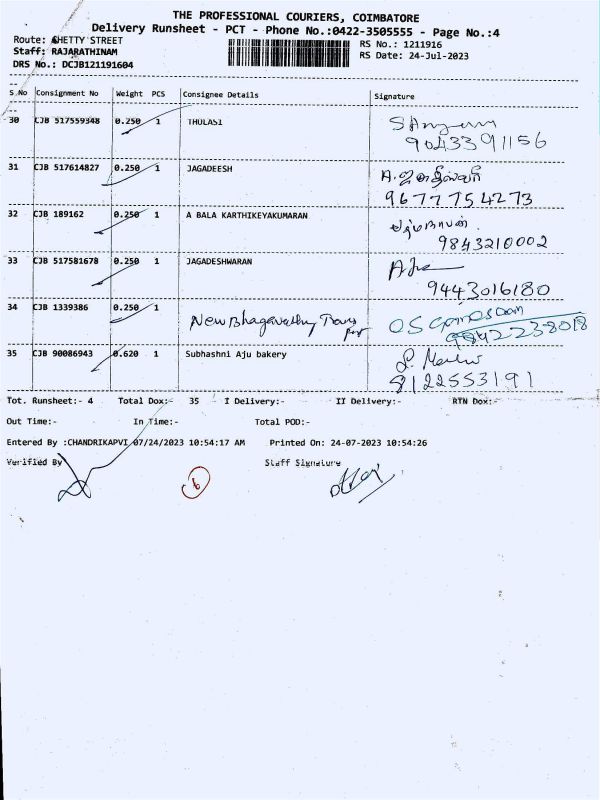 THE PROFESSIONAL COURIERS, COIMBATORE
Delivery Runsheet - PCT - Phone No.:0422-3505555 - Page No.:4
Route: CHETTY STREET
RS No.: 1211916
Staff: RAJARATHINAM
RS Date: 24-Jul-2023
DRS No.: DCJB121191604
S.No Consignment No Weight PCS Consignee Details Signature
30 CJB 517559348 0.250 1 THULASI
9043391156
31 CJB 517614827 0.250 1 JAGADEESH
9677754273
32 CJB 189162 0.250 1 A BALA KARTHIKEYAKUMARAN
பத்மநாபன்
9843210002
33 CJB 517581678 0.250 1 JAGADESHWARAN
9443016180
34 CJB 1339386 0.250 1 New Bhagavathy Trans
9842223808
35 CJB 90086943 0.620 1 Subhashni Aju bakery
8122553191
Tot. Runsheet:- 4 Total Dox:- 35 I Delivery:- II Delivery:- RTN Dox:-
Out Time:- In Time:- Total POD:-
Entered By :CHANDRIKAPVI 07/24/2023 10:54:17 AM Printed On: 24-07-2023 10:54:26
Verified By Staff Signature
6